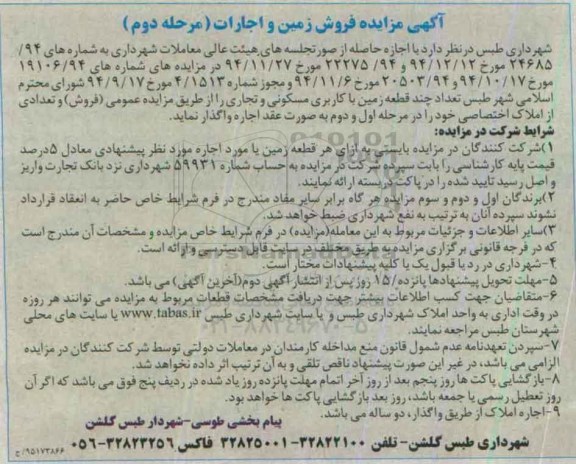 آگهی مزایده فروش زمین و اجارات (مرحله دوم)
شهرداری طبس در نظر دارد با اجازه حاصله از صورتجلسه های هیئت عالی معاملات شهرداری به شماره های ۹۴/
۲۴۶۸۵ مورخ ۹۴/۱۲/۱۲ و ۹۴/ ۲۲۲۷۵ مورخ ۹۴/۱۱/۲۷ در مزایده های شماره های ۱۹۱۰۶/۹۴
مورخ ۹۴/۱۰/۱۷ و ۲۰۵۰۳/۹۴ مورخ ۹۴/۱۱/۶ و مجوز شماره ۴/۱۵۱۳ مورخ ۹۴/۹/۱۷ شورای محترم
اسلامی شهر طبس تعداد چند قطعه زمین با کاربری مسکونی و تجاری را از طریق مزایده عمومی (فروش) و تعدادی
از املاک اختصاصی خود را در مرحله اول و دوم به صورت عقد اجاره واگذار نماید.
شرایط شرکت در مزایده:
۱)شرکت کنندگان در مزایده بایستی به ازای هر قطعه زمین یا مورد اجاره مورد نظر پیشنهادی معادل ۵درصد
قیمت پایه کارشناسی را بابت سپرده شرکت در مزایده به حساب شماره ۵۹۹۳۱ شهرداری نزد بانک تجارت واریز
و اصل رسید تایید شده را در پاکت دربسته ارائه نمایند.
۲)برندگان اول و دوم و سوم مزایده هر گاه برابر سایر مفاد مندرج در فرم شرایط خاص حاضر به انعقاد قرارداد
نشوند سپرده آنان به ترتیب به نفع شهرداری ضبط خواهد شد.
۳)سایر اطلاعات و جزئیات مربوط به این معامله(مزایده) در فرم شرایط خاص مزایده و مشخصات آن مندرج است
که در فرجه قانونی برگزاری مزایده به طریق مختلف در سایت قابل دسترسی و ارائه است.
۴-شهرداری در رد یا قبول یک یا کلیه پیشنهادات مختار است.
۵-مهلت تحویل پیشنهادها پانزده/۱۵ روز پس از انتشار آگهی دوم(آخرین آگهی) می باشد.
۶-متقاضیان جهت کسب اطلاعات بیشتر جهت دریافت مشخصات قطعات مربوط به مزایده می توانند هر روزه
در وقت اداری به واحد املاک شهرداری طبس و یا سایت شهرداری طبس www.tabas.ir یا سایت های محلی
شهرستان طبس مراجعه نمایند.
۷-سپردن تعهدنامه عدم شمول قانون منع مداخله کارمندان در معاملات دولتی توسط شرکت کنندگان در مزایده
الزامی می باشد، در غیر این صورت پیشنهاد ناقص تلقی و به آن ترتیب اثر داده نخواهد شد.
۸-بازگشایی پاکت ها روز پنجم بعد از روز آخر اتمام مهلت پانزده روز یاد شده در ردیف پنج فوق می باشد که اگر آن
روز تعطیل رسمی یا جمعه باشد، روز بعد بازگشایی پاکت ها خواهد بود.
۹-اجاره املاک از طریق واگذار، دو ساله می باشد.
پیام بخشی طوسی-شهردار طبس گلشن
شهرداری طبس گلشن- تلفن ۳۲۸۲۲۱۰۰-۳۲۸۲۵۰۰۱ فاکس ۳۲۸۲۳۲۵۶-۰۵۶
۹۵۱۷۳۸۶۶/ج